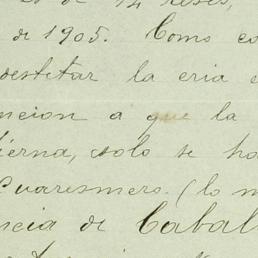 de 14 reses,
de 1905. Como co
destetar la cria e
ncion a que la
ierna, solo se ha
Cuaresmero. (lo m
ncia de Cabal